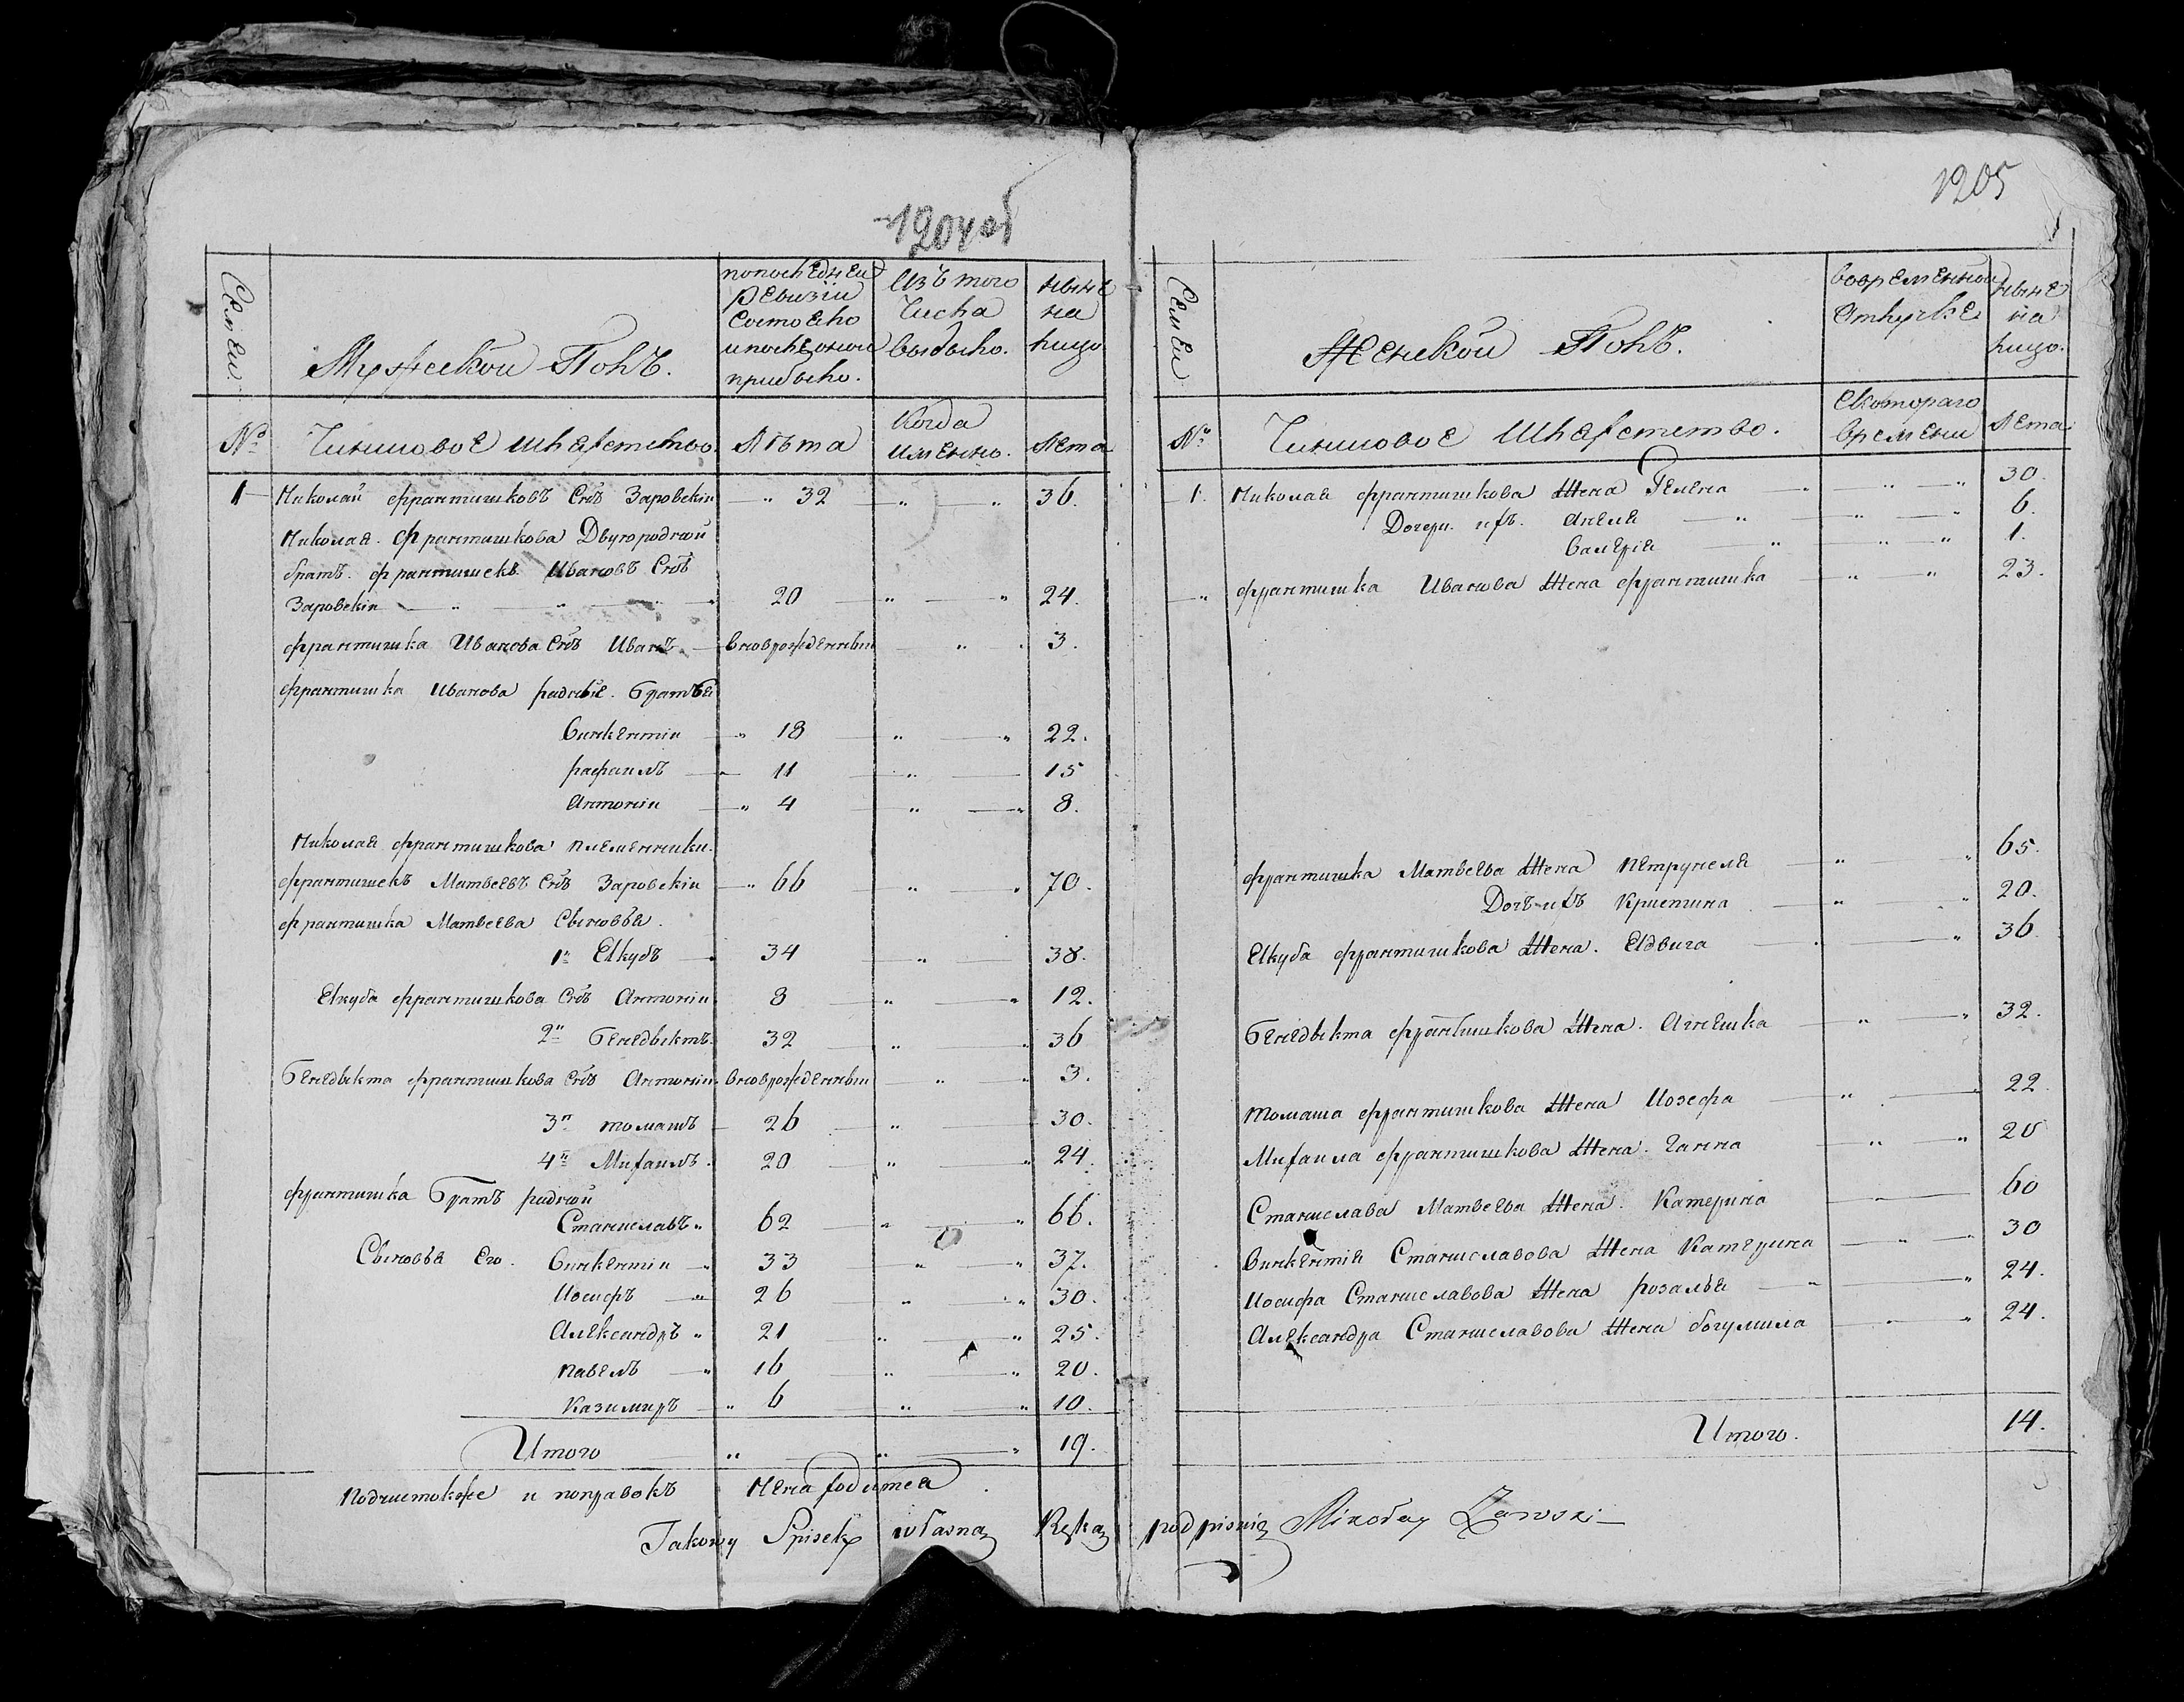 1204об
Семьи
Мужескои Полъ.
попоследнеи ревизiи состояло ипоследнеи прибыло.
Изъ того Числа выбыло.
ныне на лицо
№
Чиншовое шляхетство.
Лѣта
Когда имянно.
Лета
1 Николаи франтишковъ Снъ Заровскiи 32 36.
Николая франтишкова Двуюроднои
братъ франтишекъ Ивановъ Снъ
Заровскiи 20 24.
франтишка Иванова Снъ Иванъ вноврожденныи 3.
франтишка Иванова родные братья
Винкентiи 18 22.
рафаилъ 11 15
Антонiи 4 8.
Николая франтишкова племенники.
франтишекъ Матвеевъ Снъ Заровскiи 66 70.
франтишка Матвеева Сыновья.
1й Якубъ 34 38.
Якуба франтишкова Снъ Антонiи 8 12.
2й Бенедыктъ 32 36
Бенедыкта франтишкова Снъ Антонiи вноврожденныи 3.
3й томашъ 26 30.
4й Михаилъ 20 24.
франтишка братъ роднои
Станиславъ 62 66.
Сыновья Его. Винкентiи 33 37.
Иосифъ 26 30.
Александръ 21 25.
павелъ 16 20.
Казимиръ 6 10.
Итого 19.
Подчистокже и поправокъ Ненаходится
Takowy Spisek własną Ręką podpisuię Mikołay Zarwski
1205
Семьи
Женскои Полъ.
вовременнои Отлучке
ныне на лицо.
№
Чиншовое Шляхетство.
Скотораго времени
Лета
1. Николая франтишкова Жена Гелена 30.
Дочери ихъ. Анеля 6.
Валерiя 1.
франтишка Иванова Жена франтишка 23.
франтишка Матвеева Жена петрунеля 65.
Дочь ихъ Кристина 20.
Якуба франтишкова Жена. Ядвига 36
Бенедыкта франтишкова Жена. Агнешка 32.
томаша франтишкова Жена Иозефа 22
Михаила франтишкова Жена. Ганна 20
Станислава Матвеева Жена. Катерина 60
Винкентiя Станиславова Жена Катерина 30
Иосифа Станиславова Жена розалья 24.
Александра Станиславова Жена богумила 24.
Итого. 14.